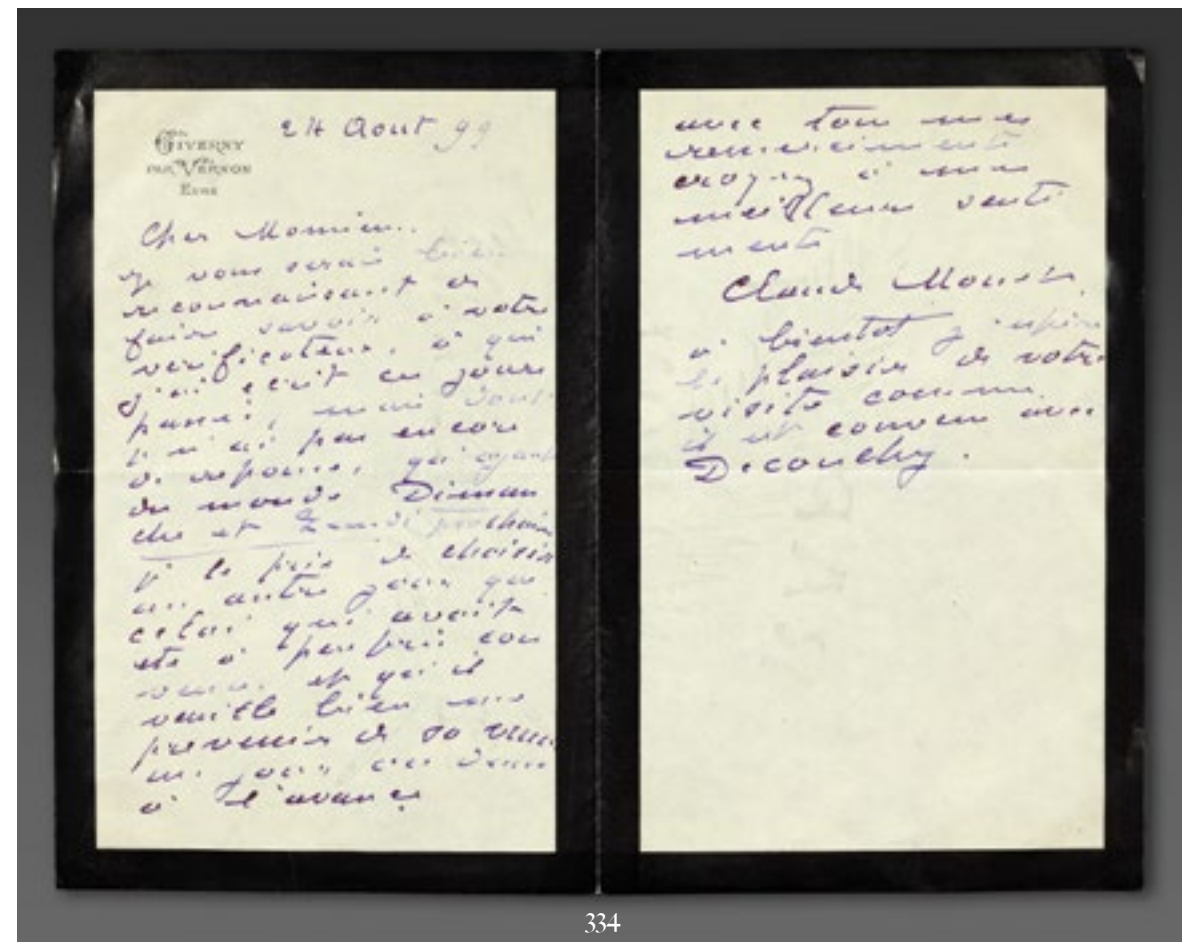 GIVERNY
PAR VERNON
EURE
24 Aout 99
Cher Monsieur
je vous serais bien
reconnaissant de
faire savoir à votre
verificateur, à qui
j'ai ecrit ces jours
passés, mais dont
je n'ai pas encore
de reponse, qu'ayant
du monde Diman
che et Lundi prochain
je le prie de choisir
un autre jour que
celui qui avait
été à peu pres con
venu, et qu'il
veuille bien me
prevenir de sa venue
un jour ou deux
à l'avance
avec tous mes
remerciements
croyez à mes
meilleurs senti
ments
Claude Monet
à bientot j'espère
le plaisir de votre
visite comme
il est convenu avec
Deconchy.
334